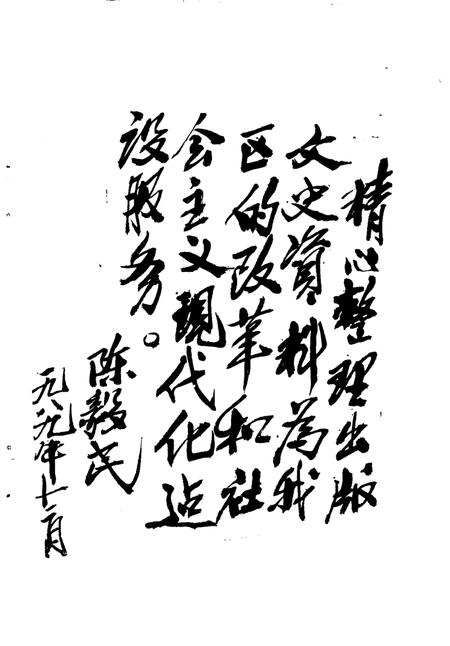 精心整理出版
文史資料為我
区的改革和社
会主义現代化迠
设服务。
陈毅民
一九八九年十二月